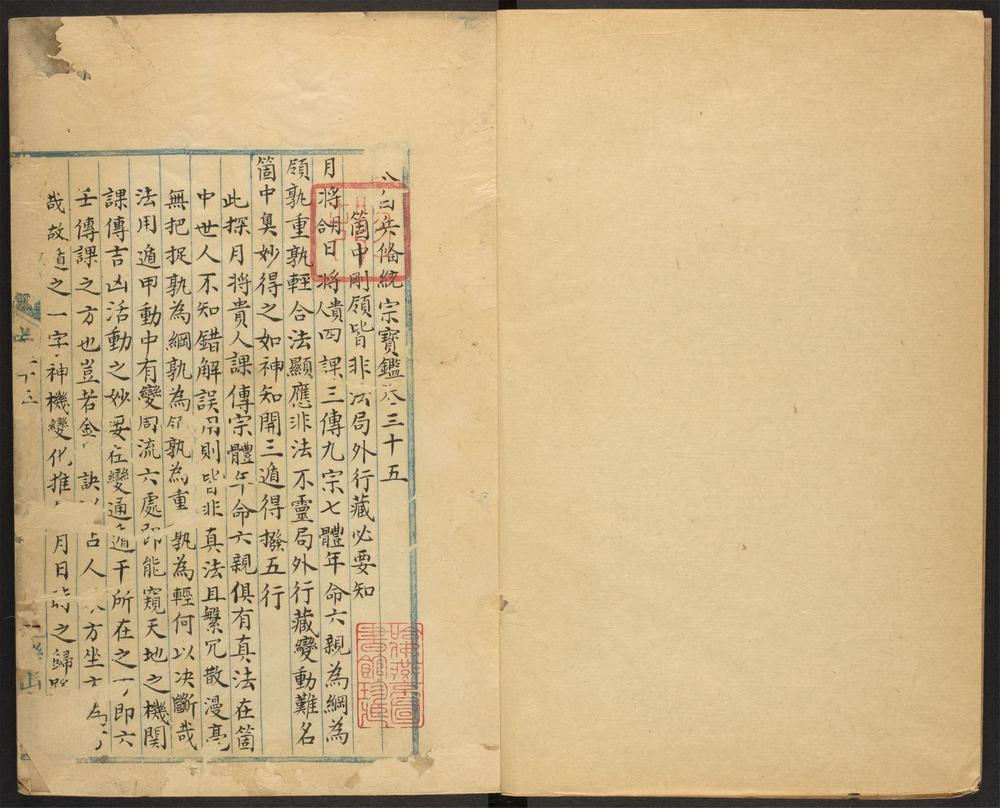 六白兵俻統宗寳鑑卷三十五
箇中剛領皆非法局外行藏必要知
月將朔日將貴人四課三傳九宗七體年命六親為綱為
領孰重孰輕合法顯應非法不靈局外行藏變動難名
箇中奥妙得之如神知開三遁得撥五行
此探月將貴人課傳宗體年命六親俱有真法在箇
中世人不知錯解誤用則皆非真法且繁冗散漫毫
無把捉孰為綱孰為領孰為重孰為輕何以决斷哉
法用遁甲動中有變周流六處即能窺天地之機関
課傳吉凶活動之妙要在變通遁干所在之方即六
壬傳課之方也豈若金口訣以占人方坐
哉故遁之一字神機變化推月日時之歸
三十三
哈佛燕京圖書館珍藏